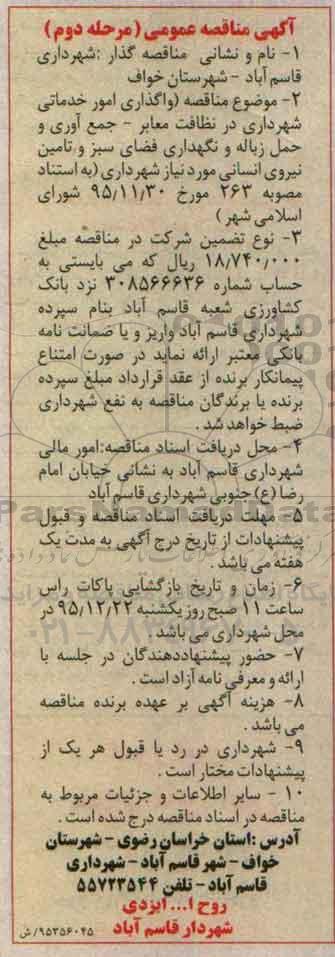 آگهی مناقصه عمومی (مرحله دوم)
۱- نام و نشانی مناقصه گذار :شهرداری
قاسم آباد - شهرستان خواف
۲- موضوع مناقصه (واگذاری امور خدماتی
شهرداری در نظافت معابر - جمع آوری و
حمل زباله و نگهداری فضای سبز و تامین
نیروی انسانی مورد نیاز شهرداری (به استناد
مصوبه ۲۶۳ مورخ ۹۵/۱۱/۳۰ شورای
اسلامی شهر )
۳- نوع تضمین شرکت در مناقصه مبلغ
۱۸/۷۴۰/۰۰۰ ریال که می بایستی به
حساب شماره ۳۰۸۵۶۶۶۳۶ نزد بانک
کشاورزی شعبه قاسم آباد بنام سپرده
شهرداری قاسم آباد واریز و یا ضمانت نامه
بانکی معتبر ارائه نماید در صورت امتناع
پیمانکار برنده از عقد قرارداد مبلغ سپرده
برنده یا برندگان مناقصه به نفع شهرداری
ضبط خواهد شد .
۴- محل دریافت اسناد مناقصه:امور مالی
شهرداری قاسم آباد به نشانی خیابان امام
رضا (ع) جنوبی شهرداری قاسم آباد
۵- مهلت دریافت اسناد مناقصه و قبول
پیشنهادات از تاریخ درج آگهی به مدت یک
هفته می باشد .
۶- زمان و تاریخ بازگشایی پاکات راس
ساعت ۱۱ صبح روز یکشنبه ۹۵/۱۲/۲۲ در
محل شهرداری می باشد .
۷- حضور پیشنهاددهندگان در جلسه با
ارائه و معرفی نامه آزاد است .
۸- هزینه آگهی بر عهده برنده مناقصه
می باشد .
۹- شهرداری در رد یا قبول هر یک از
پیشنهادات مختار است .
۱۰ - سایر اطلاعات و جزئیات مربوط به
مناقصه در اسناد مناقصه درج شده است .
آدرس :استان خراسان رضوی - شهرستان
خواف - شهر قاسم آباد - شهرداری
قاسم آباد - تلفن ۵۵۷۲۳۵۴۴
روح ا... ایزدی
شهردار قاسم آباد
۹۵۳۵۶۰۴۵/ ش